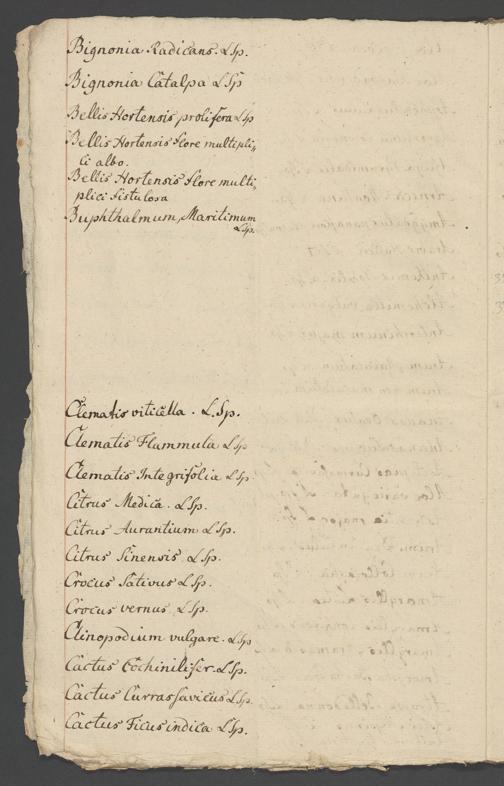 Bignonia Radicans. L Sp.
Bignonia Catalpa L Sp
Bellis Hortensis prolifera L Sp
Bellis Hortensis flore multipli„
ci albo.
Bellis Hortensis flore multi„
plici fistulosa
Buphthalmum, Maritimum
L Sp.
Clematis viticella. L. Sp.
Clematis Flammula L Sp
Clematis Integrifolia L Sp
Citrus Medica. L Sp.
Citrus Aurantium L Sp.
Citrus Sinensis L Sp.
Crocus Sativus L Sp.
Crocus vernus L Sp.
Clinopodium vulgare. L Sp
Cactus Cochinilifer. L Sp.
Cactus Currassavicus L Sp.
Cactus Ficus indica L Sp.